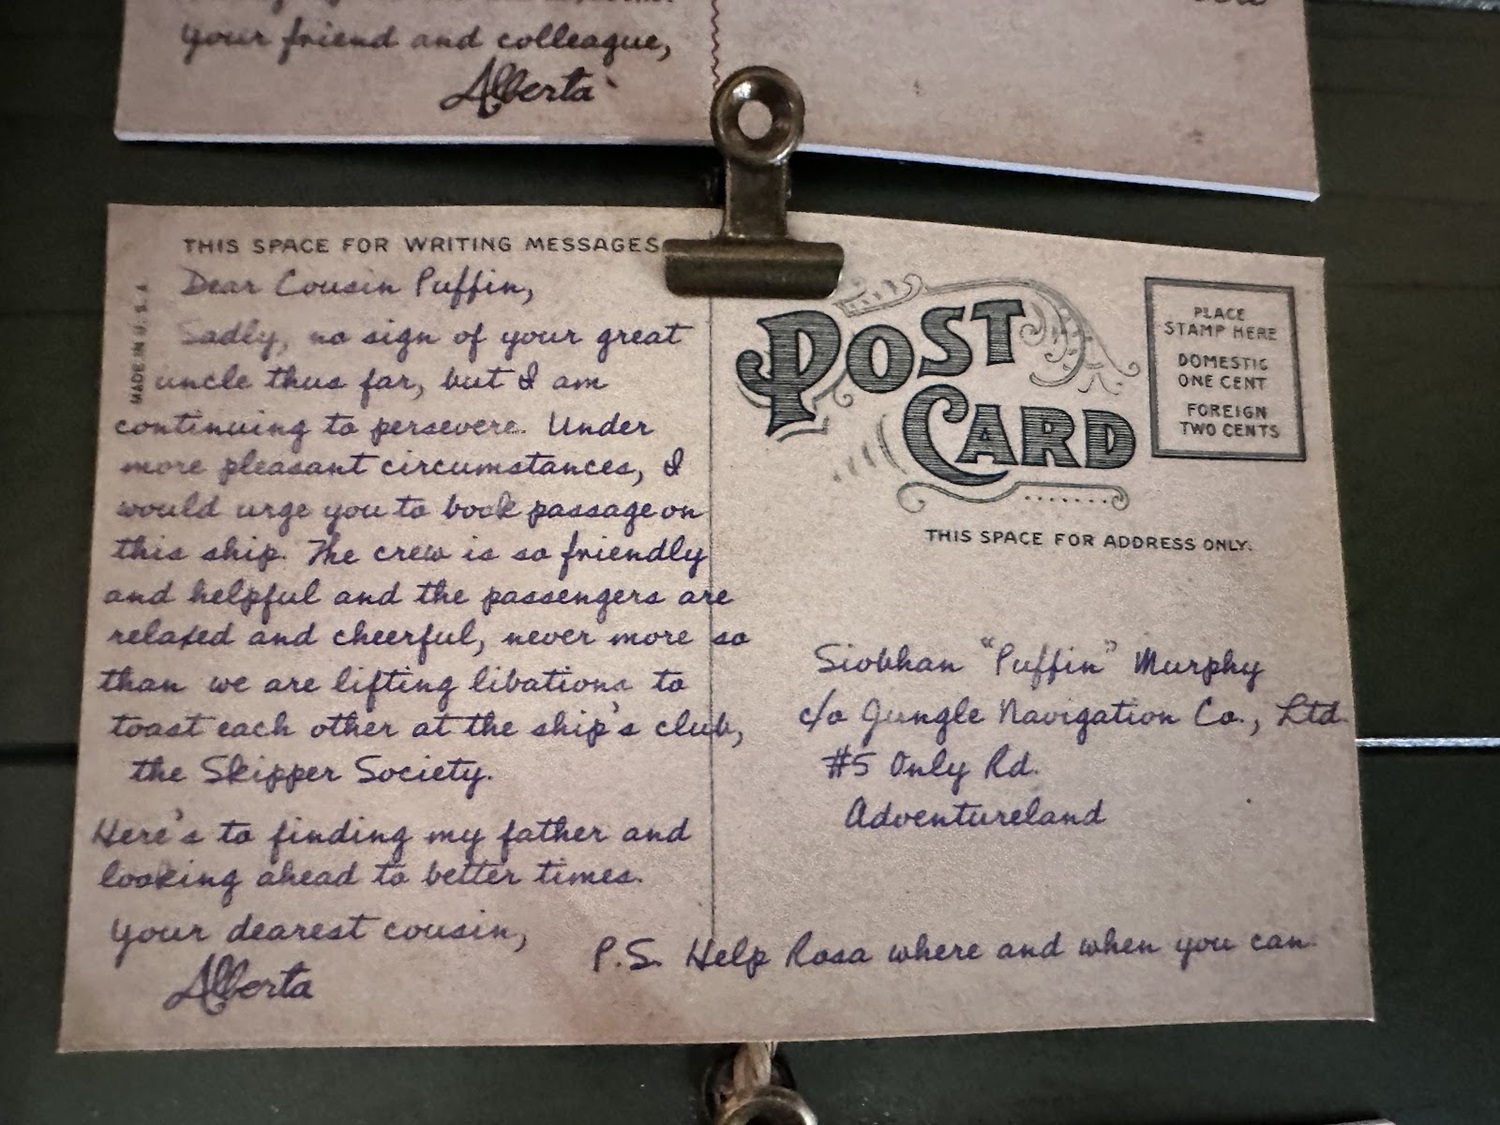 your friend and colleague,
Alberta
THIS SPACE FOR WRITING MESSAGES
MADE IN U.S.A
Dear Cousin Puffin,
Sadly, no sign of your great
uncle thus far, but I am
continuing to persevere. Under
more pleasant circumstances, I
would urge you to book passage on
this ship. The crew is so friendly
and helpful and the passengers are
relaxed and cheerful, never more so
than we are lifting libations to
toast each other at the ship's club,
the Skipper Society.
Here's to finding my father and
looking ahead to better times.
Your dearest cousin,
Alberta
P.S. Help Rosa where and when you can.
POST
CARD
PLACE
STAMP HERE
DOMESTIC
ONE CENT
FOREIGN
TWO CENTS
THIS SPACE FOR ADDRESS ONLY.
Siobhan "Puffin" Murphy
c/o Jungle Navigation Co., Ltd.
#5 Only Rd.
Adventureland